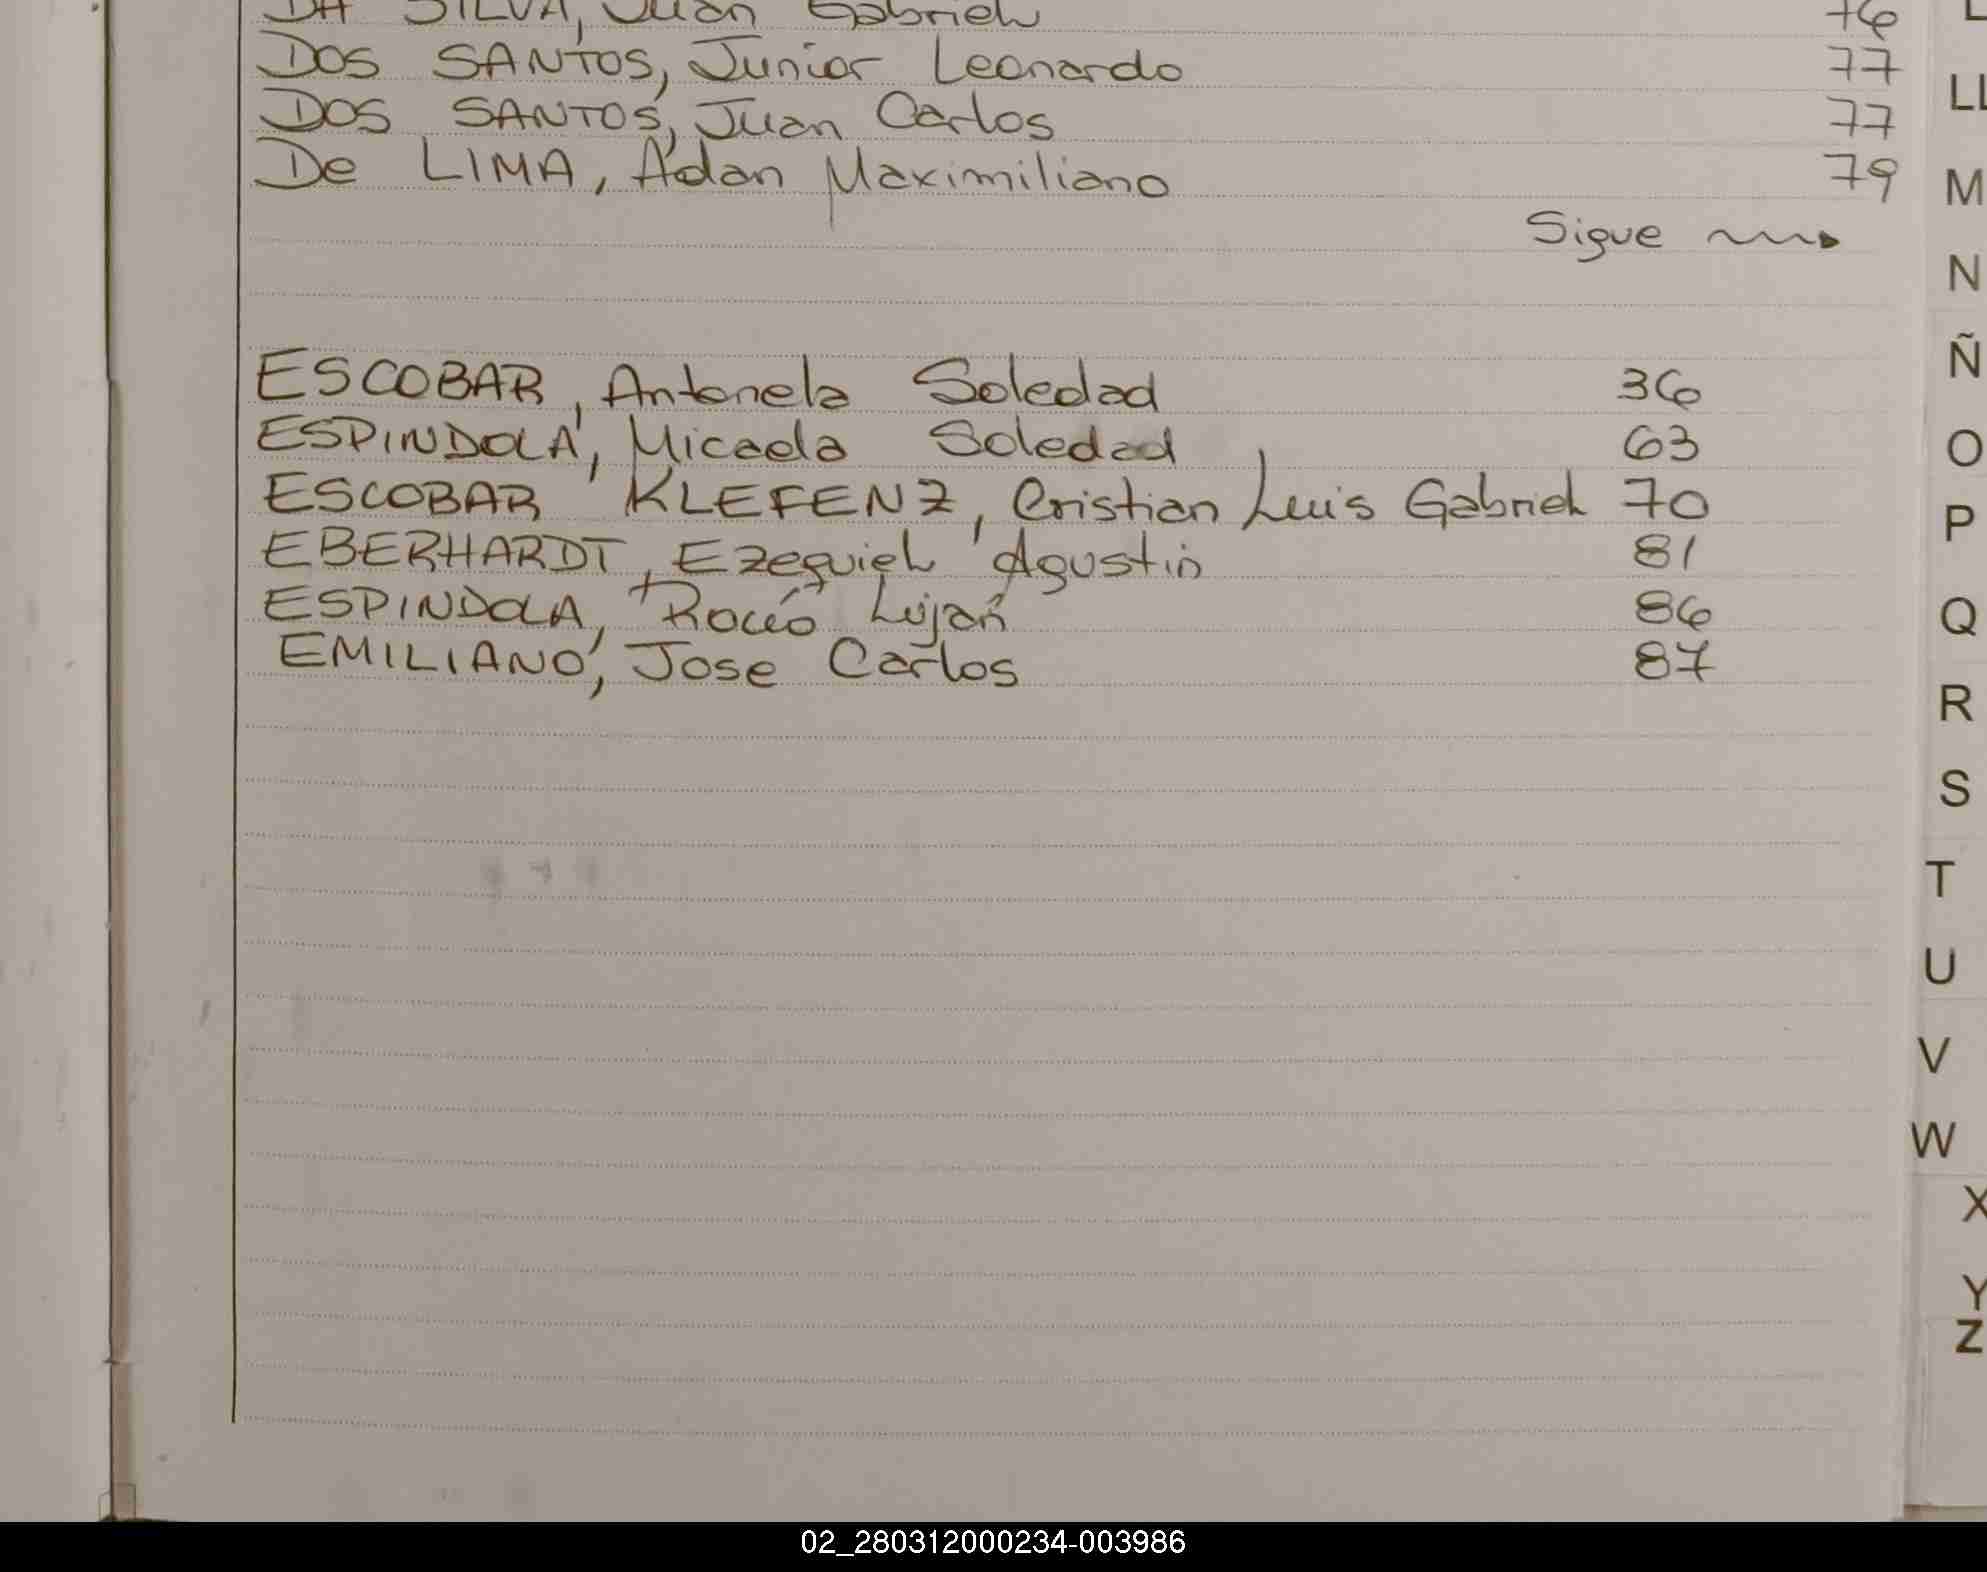 DA SILVA, Juan Gabriel 76
DOS SANTOS, Junior Leonardo 77
DOS SANTOS, Juan Carlos 77
De LIMA, Adan Maximiliano 79
Sigue
ESCOBAR, Antonela Soledad 36
ESPINDOLA, Micaela Soledad 63
ESCOBAR KLEFENZ, Cristian Luis Gabriel 70
EBERHARDT, Ezequiel Agustin 81
ESPINDOLA, Rocío Luján 86
EMILIANO, Jose Carlos 87
L
LL
M
N
Ñ
O
P
Q
R
S
T
U
V
W
X
Y
Z
02_280312000234-003986